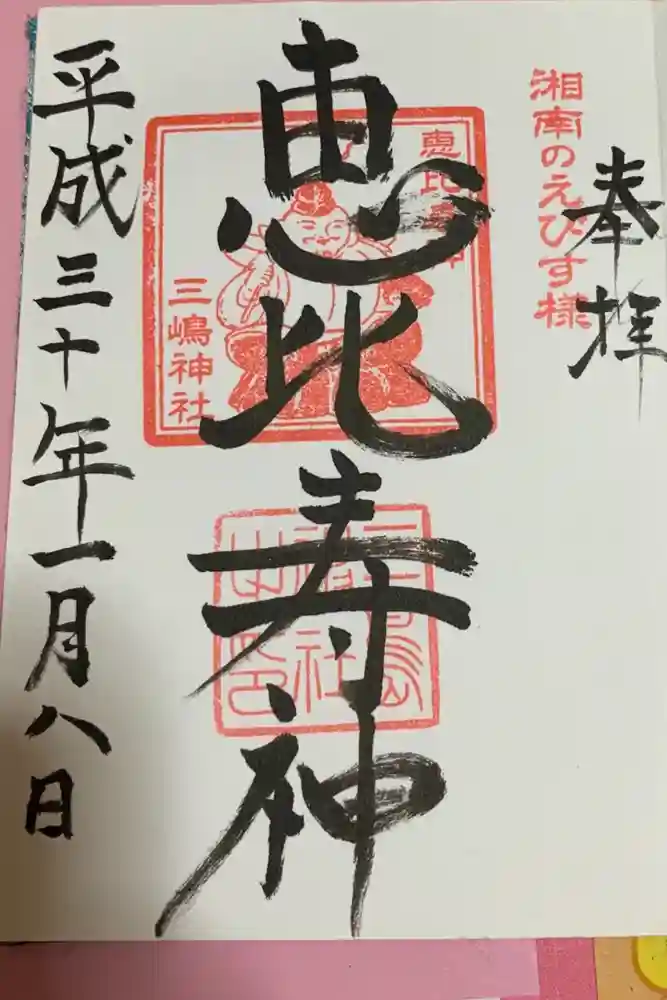 奉拝
湘南のえびす様
恵比寿神
恵比
三嶋神社
平成三十年一月八日